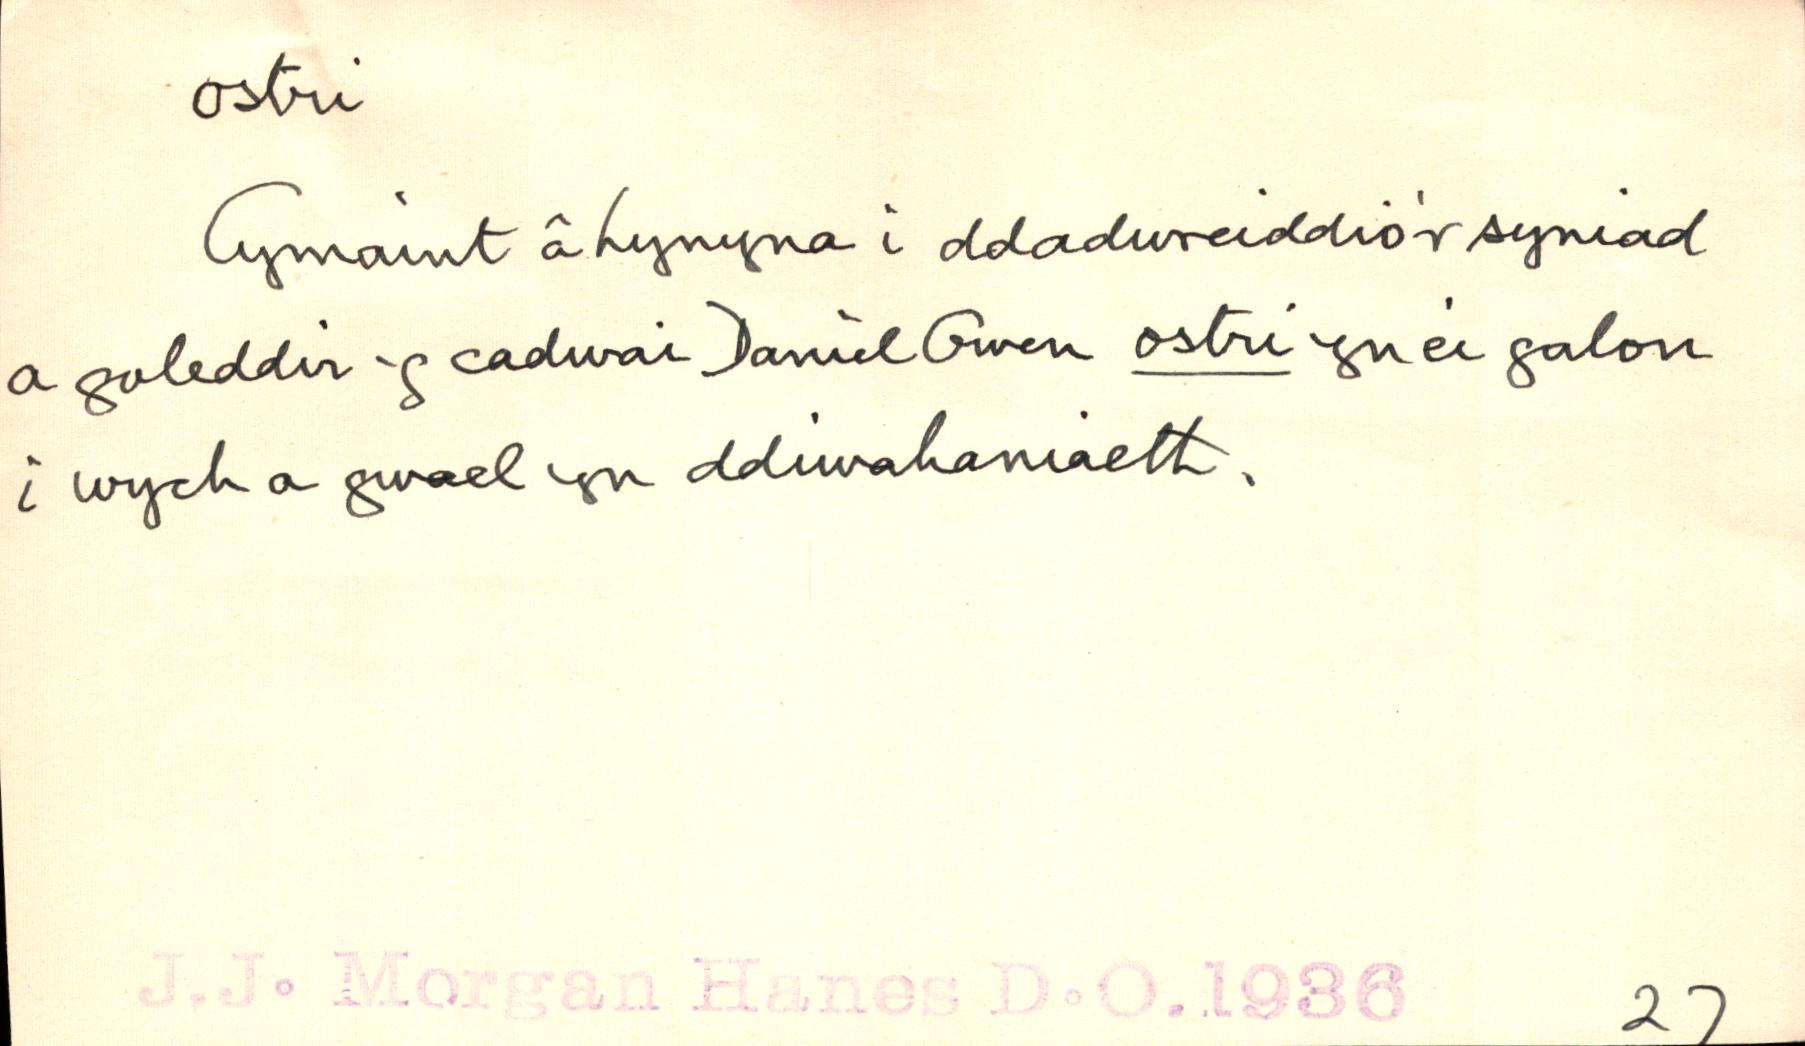 ostri
Cymaint â hynyna i ddadwreiddio'r syniad
a goleddir y cadwai Daniel Owen ostri yn ei galon
i wych a gwael yn ddiwahaniaeth.
J.J. Morgan Hanes D.O. 1936
27